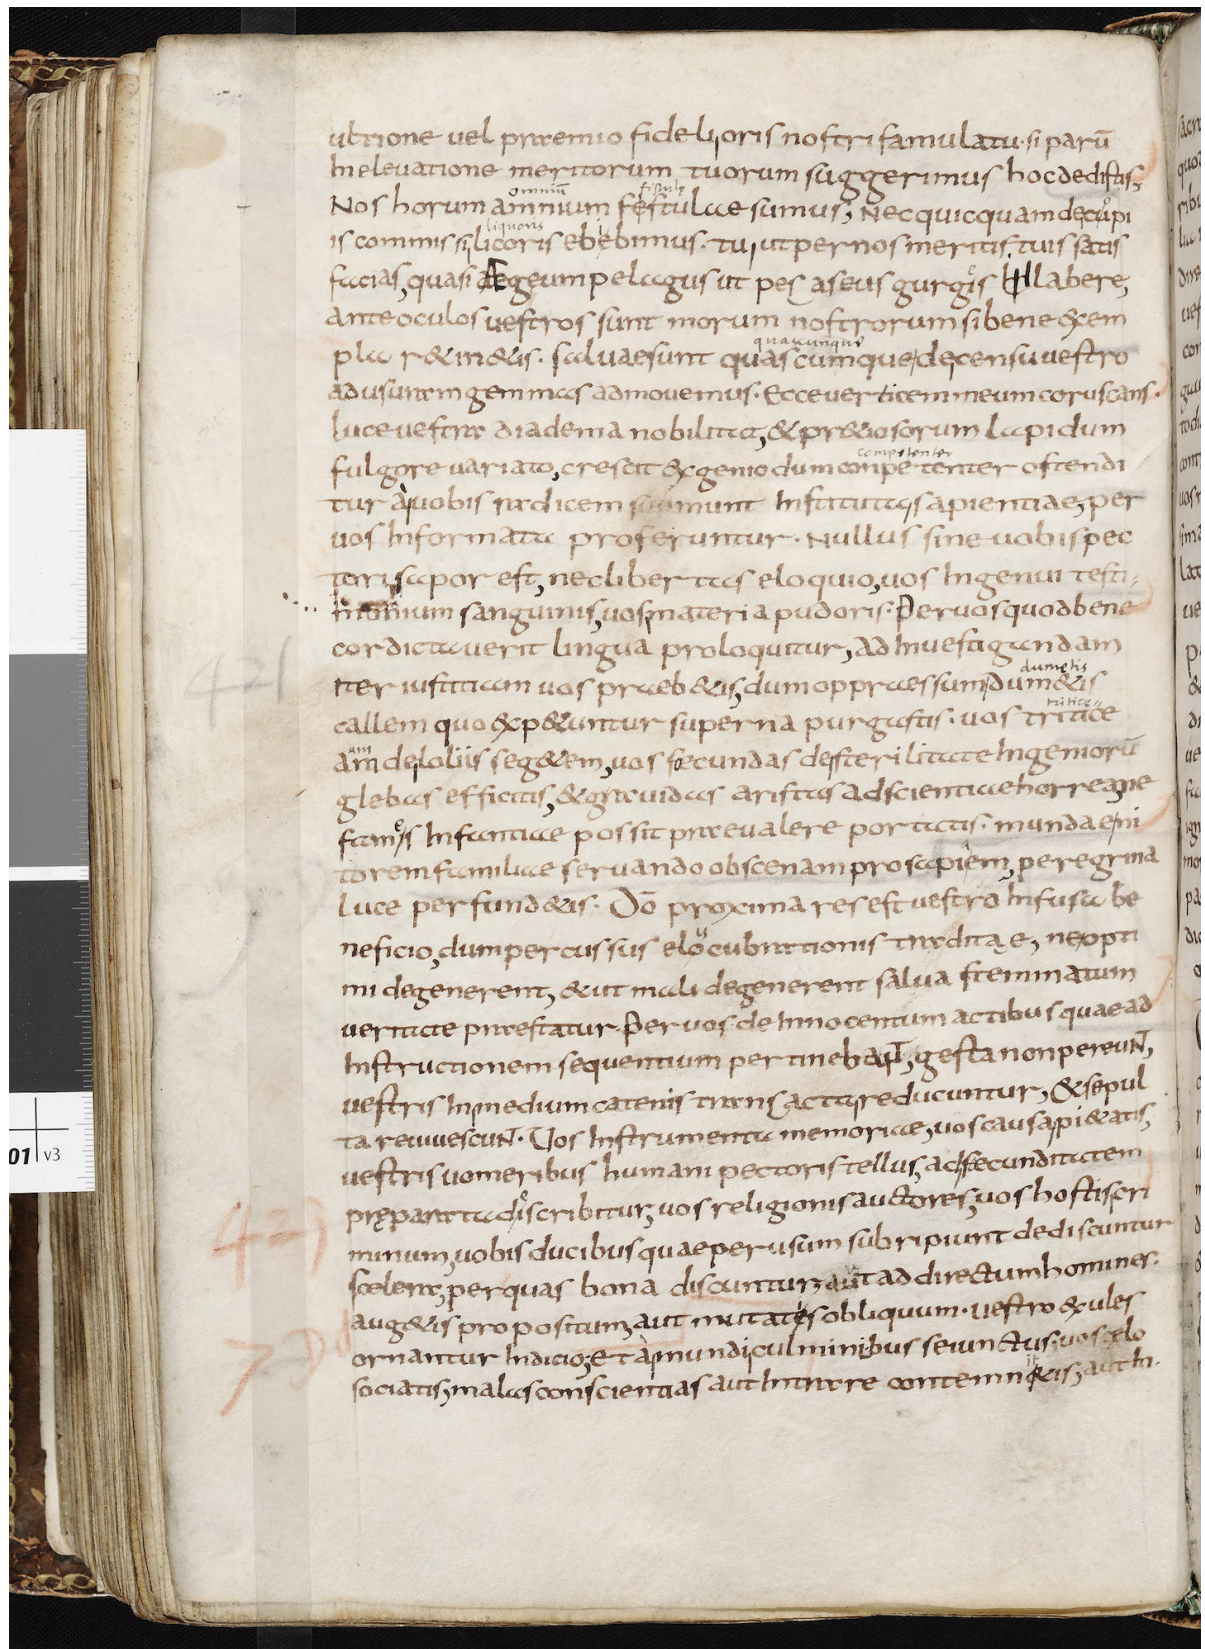 ultione vel praemio fidelioris nostri famulatu. si parū
In elevatione meritorum tuorum suggerimus hoc dedistis,
omniū fistulę
Nos horum amnium festulae sumus, Nec quicquam decupi
liquoris
is commissi licoris ebebimus. tu, ut per nos meritis, tuis satis
facias, quasi AEgeum pelagus ut pes aseus gurgis labere,
ante oculos vestros sunt morum nostrorum si bene exem
pla r&in&is. salvae sunt quascumque, de censu vestro
quacunque
ad usuram gemmas admovemus. Ecce verticem meum coruscans.
luce vestra diadema nobilitat, & pr&iosorum lapidum
competenter
fulgore variato, crescit & genio dum conpetenter ostendi
tur à vobis radicem sumunt Instituta sapientiae, per
vos Informata proferuntur. Nullus sine vobis pec
tori sapor est, nec libertas eloquio, vos Ingenui testi
monium sanguinis, vos materia pudoris. Per vos quod bene
cor dictaverit lingua proloquitur, ad Investigandam
dumetis
iter iustitiam vos praeb&is, dum oppraessum dum&is
rutice
callem quo exp&untur superna purgastis. vos tritice
am
am de loliis seg&em, vos foecundas de sterilitate Ingeniorū
glebas efficitis, & gravidas aristas ad scientiae horrea, ne
fames Infantiae possit praevalere portatis. munda, e ni
torem familiae servando obscenam prosapiem, peregrina
luce perfund&is. Dō proxima res est vestro Infusa be
neficio, dum percussus elocubrationis tradita e, ne opti
mi degenerent, & ut mali degenerent salva stemmatum
veritate praestatur. Per vos de Innocentum actibus quae ad
Instructionem sequentium pertinebant, gesta non pereuNT,
vestris In medium catenis transacta reducuntur, & sepul
ta reviuescuNT. Vos Instrumenta memoriae, vos causa pi&atis,
vestris vomeribus humani pectoris tellus, ad fecunditatem
pręparata discribitur, vos religionis auctores, vos hostis cri
minum, vobis ducibus quae per usum subripiunt dediscuntur
scelera, per quas bona discuntur, aut ad directum homines.
aug&is propositum, aut mutatis obliquum. vestro exules
ornantur Indicio, Et a mundi culminibus seiunctus, vos celo
sociatis, malas conscientias aut Intrare contemn&is, aut In.
421
421
7